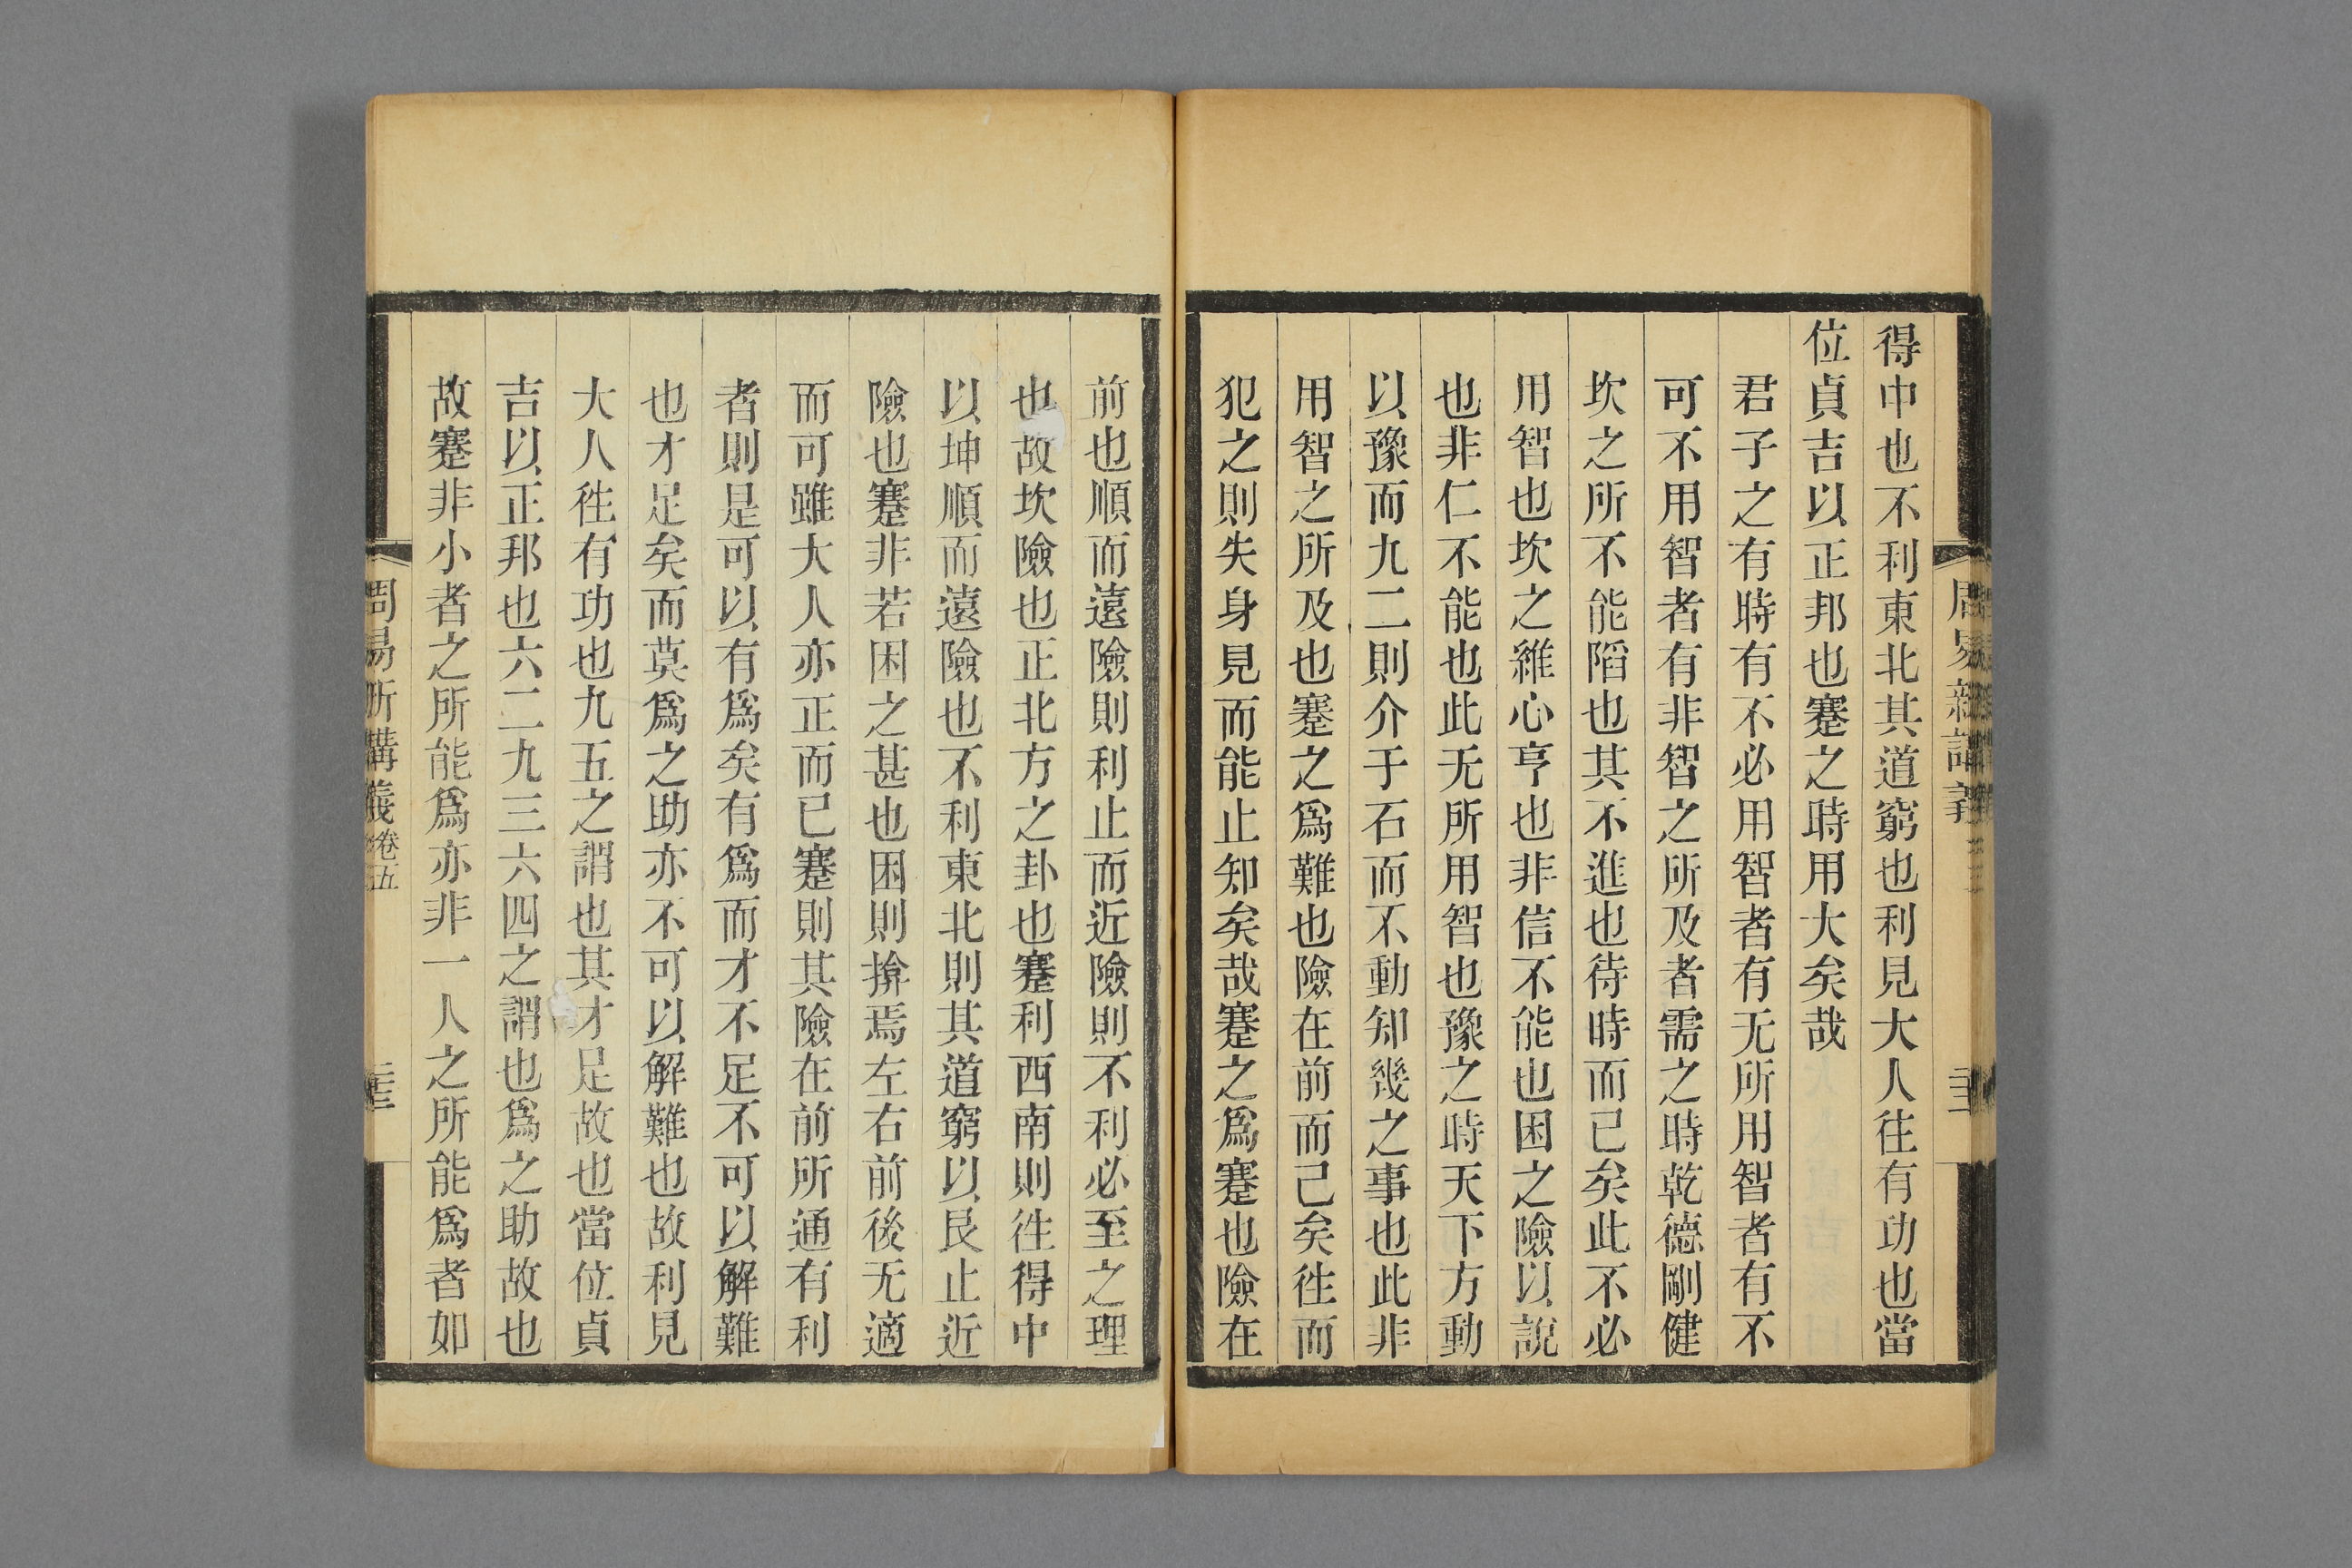 得中也不利東北其道窮也利見大人往有功也當
位貞吉以正邦也蹇之時用大矣哉
君子之有時有不必用智者有无所用智者有不
可不用智者有非智之所及者需之時乾德剛健
坎之所不能陷也其不進也待時而已矣此不必
用智也坎之維心亨也非信不能也困之險以說
也非仁不能也此无所用智也豫之時天下方動
以豫而九二則介于石而不動知幾之事也此非
用智之所及也蹇之爲難也險在前而已矣往而
犯之則失身見而能止知矣哉蹇之爲蹇也險在
前也順而遠險則利止而近險則不利必至之理
也故坎險也正北方之卦也蹇利西南則往得中
以坤順而遠險也不利東北則其道窮以艮止近
險也蹇非若困之甚也困則揜焉左右前後无適
而可雖大人亦正而已蹇則其險在前所通有利
者則是可以有爲矣有爲而才不足不可以解難
也才足矣而莫爲之助亦不可以解難也故利見
大人往有功也九五之謂也其才足故也當位貞
吉以正邦也六二九三六四之謂也爲之助故也
故蹇非小者之所能爲亦非一人之所能爲者如
周易新講義 卷五